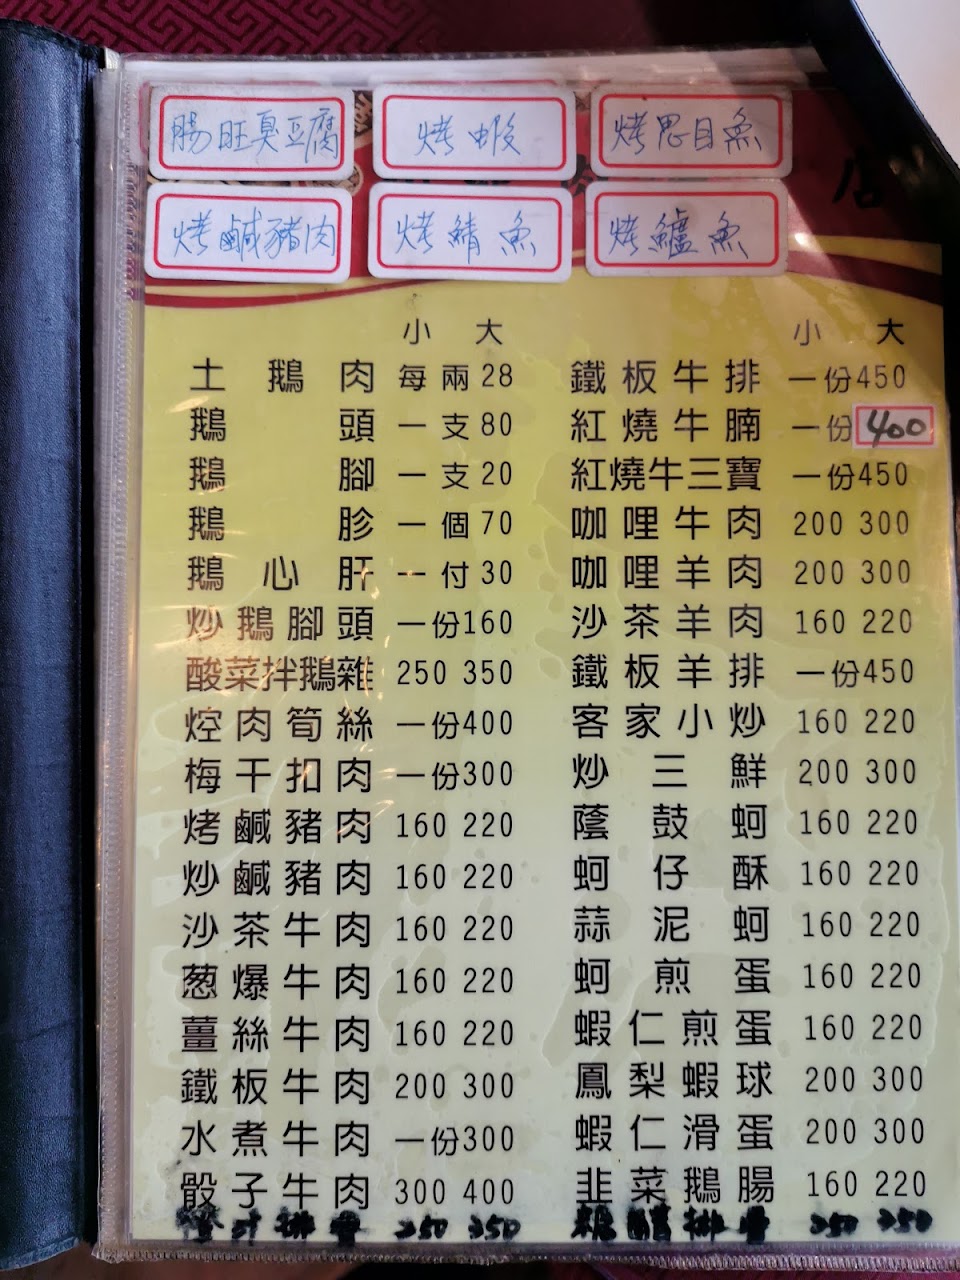 腸旺臭豆腐
烤蝦
烤思目魚
烤鹹豬肉
烤鯖魚
烤鱸魚
店
小 大
土鵝肉 每兩28
鵝頭 一支80
鵝腳 一支20
鵝胗 一個70
鵝心肝 一付30
炒鵝腳頭 一份160
酸菜拌鵝雜 250 350
焢肉筍絲 一份400
梅干扣肉 一份300
烤鹹豬肉 160 220
炒鹹豬肉 160 220
沙茶牛肉 160 220
葱爆牛肉 160 220
薑絲牛肉 160 220
鐵板牛肉 200 300
水煮牛肉 一份300
骰子牛肉 300 400
排骨 250 350
小 大
鐵板牛排 一份450
紅燒牛腩 一份400
紅燒牛三寶 一份450
咖哩牛肉 200 300
咖哩羊肉 200 300
沙茶羊肉 160 220
鐵板羊排 一份450
客家小炒 160 220
炒三鮮 200 300
蔭鼓蚵 160 220
蚵仔酥 160 220
蒜泥蚵 160 220
蚵煎蛋 160 220
蝦仁煎蛋 160 220
鳳梨蝦球 200 300
蝦仁滑蛋 200 300
韭菜鵝腸 160 220
糖醋排骨 250 350